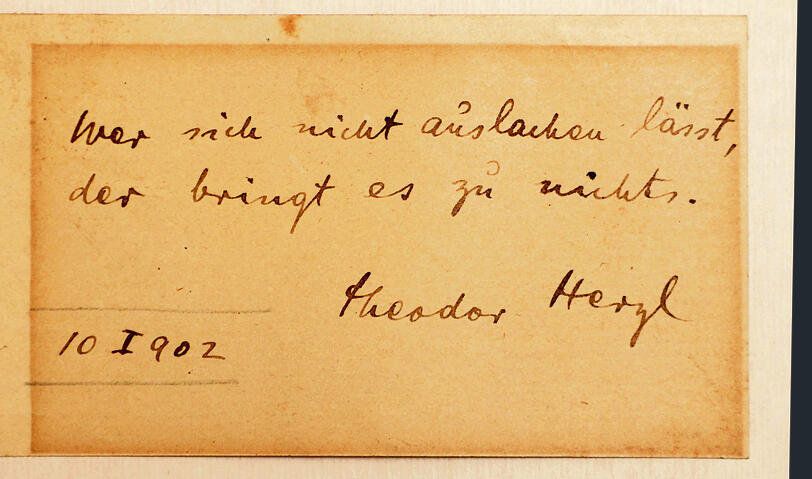 Wer sich nicht auslachen lässt,
der bringt es zu nichts.
Theodor Herzl
10 I 902